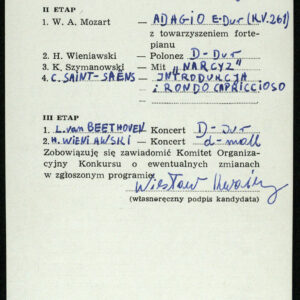 II ETAP
1. W. A. Mozart — ADAGIO E-Dur (K.V. 261)
z towarzyszeniem forte-
pianu
2. H. Wieniawski — Polonez D-Dur
3. K. Szymanowski — Mit „NARCYZ"
4. C. SAINT-SAËNS — INTRODUKCJA
i RONDO CAPRICCIOSO
III ETAP
1. L. van BEETHOVEN Koncert D-Dur
2. H. WIENIAWSKI — Koncert d-moll
Zobowiązuję się zawiadomić Komitet Organiza-
cyjny Konkursu o ewentualnych zmianach
w zgłoszonym programie.
Wiesław
(własnoręczny podpis kandydata)